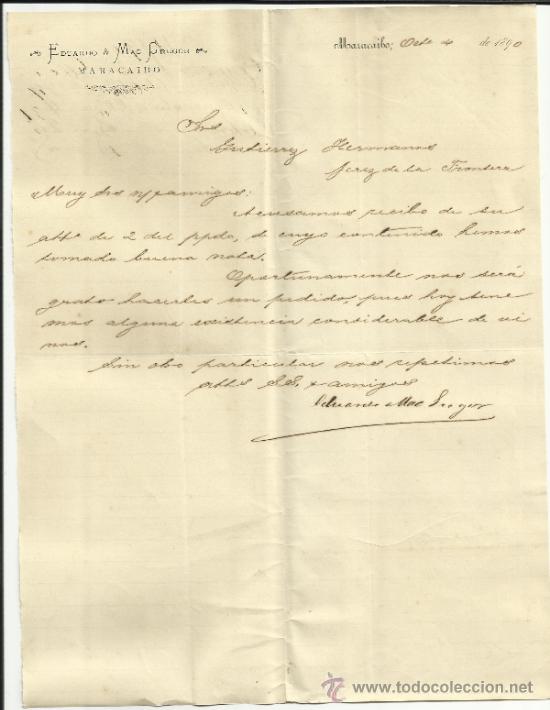 Eduardo A. Mac Gregor
MARACAIBO
Maracaibo, Octe 4 de 1890
Sres
Gutierrez Hermanos
Jerez de la Frontera
Muy Sres n/ amigos:
Acusamos recibo de su
atta de 2 del ppdo, de cuyo contenido hemos
tomado buena nota.
Oportunamente nos será
grato hacerles un pedido, pues hoy tene
mos alguna existencia considerable de vi
nos.
Sin otro particular nos repetimos
atts S.S. y amigos
Eduardo A Mac Gregor
todocoleccion
www.todocoleccion.net